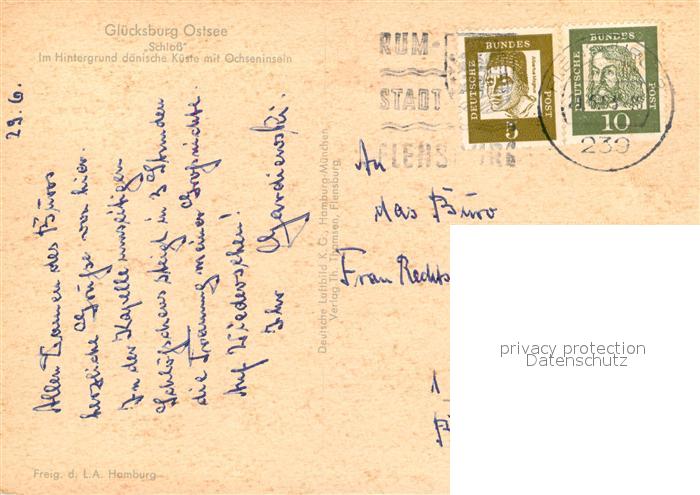 Glücksburg Ostsee
„Schloß"
Im Hintergrund dänische Küste mit Ochseninseln
29.6.
Allen Damen des Büros
herzliche Grüße von hier.
In der Kapelle umseitigen
Schlößchens steigt in 3 Stunden
die Trauung meiner Großnichte.
Auf Wiedersehen!
Ihr
Freig. d. L.A. Hamburg
Deutsche Luftbild K.G., Hamburg-München
Verlag Th. Thomsen, Flensburg
RUM-
STADT
FLENSBURG
DEUTSCHE BUNDES POST
5
DEUTSCHE BUNDES POST
10
239
An
das Büro
Frau Rechts
1
privacy protection
Datenschutz